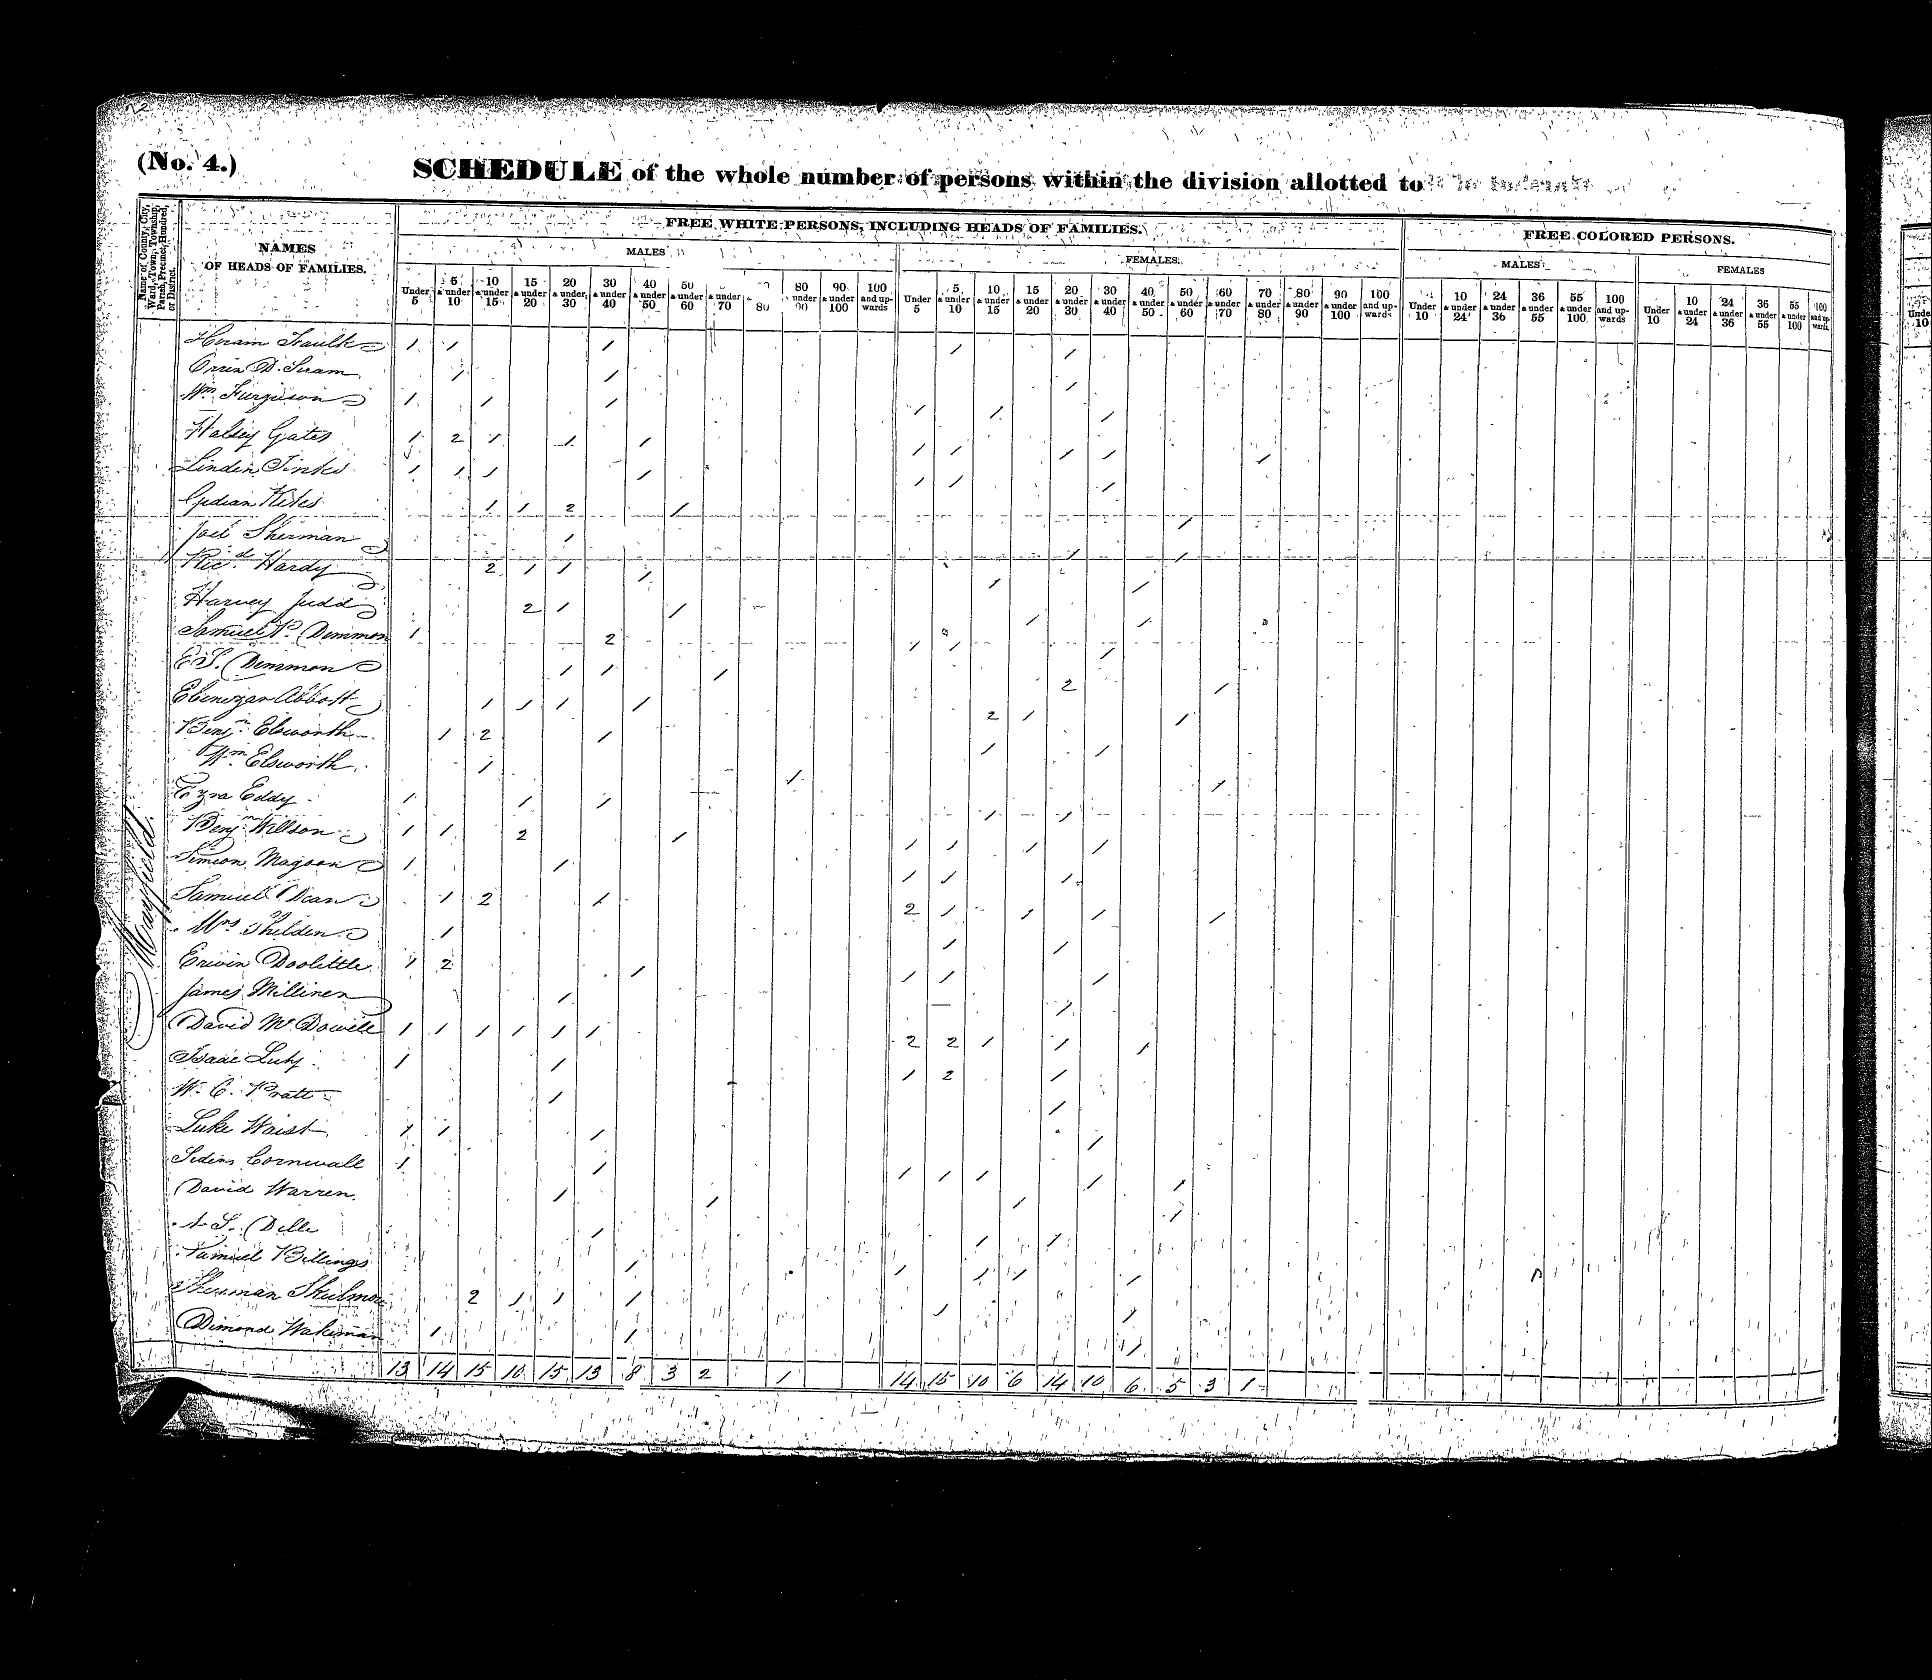 (No. 4.)
SCHEDULE of the whole number of persons within the division allotted to
Name of County, City, Ward, Town, Township, Parish, Precinct, Hundred, or District.
NAMES
OF HEADS OF FAMILIES.
FREE WHITE PERSONS, INCLUDING HEADS OF FAMILIES.
FREE COLORED PERSONS.
MALES
FEMALES.
MALES
FEMALES
Under 5 | 5 & under 10 | 10 & under 15 | 15 & under 20 | 20 & under 30 | 30 & under 40 | 40 & under 50 | 50 & under 60 | & under 70 | 80 | 80 under 90 | 90 & under 100 | 100 and upwards | Under 5 | 5 & under 10 | 10 & under 15 | 15 & under 20 | 20 & under 30 | 30 & under 40 | 40 & under 50 | 50 & under 60 | 60 & under 70 | 70 & under 80 | 80 & under 90 | 90 & under 100 | 100 and upwards | Under 10 | 10 & under 24 | 24 & under 36 | 36 & under 55 | 55 & under 100 | 100 and upwards | Under 10 | 10 & under 24 | 24 & under 36 | 36 & under 55 | 55 & under 100 | 100 and upwards
Mayfield
Hiram 1 1 1 1 1
Orrin D. 1 1 1
Wm Furguson 1 1 1 1 1 1
Halsey Gates 1 2 1 1 1 1 1 1 1 1
Linden 1 1 1 1 1 1 1
Gidian 1 1 2 1 1
Joel Sherman 1 1 1
Ricd Hardy 2 1 1 1 1 1
Harvey Judd 2 1 1 1 1
Samuel Dimmon 1 2 1 1 1
E. S. Dimmon 1 1 1 2 1
Ebenezar Abbott 1 1 1 1 2 1 1
Benjn Elsworth 1 2 1 1 1
Wm Elsworth 1 1 1
Ezra Eddy 1 1 1 1 1
Benjn Willson 1 1 2 1 1 1 1 1
Simeon Magoon 1 1 1 1 1
Samuel Dean 1 2 1 2 1 1 1 1
Mrs 1 1 1
Erwin Doolittle 1 2 1 1 1 1
James Millinen 1 1
David McDowell 1 1 1 1 1 1 2 2 1 1 1
Isaac 1 1 1 2 1
W. C. Pratt 1 1
Luke Waist 1 1 1 1
Cornwall 1 1 1 1 1 1 1
David Warren 1 1 1 1
S. Dille 1 1 1
Samuel Billings 1 1 1 1 1
Sherman 2 1 1 1 1 1
Dimond Wakeman 1 1 1
13 14 15 10 15 13 8 3 2 1 14 15 10 6 14 10 6 5 3 1